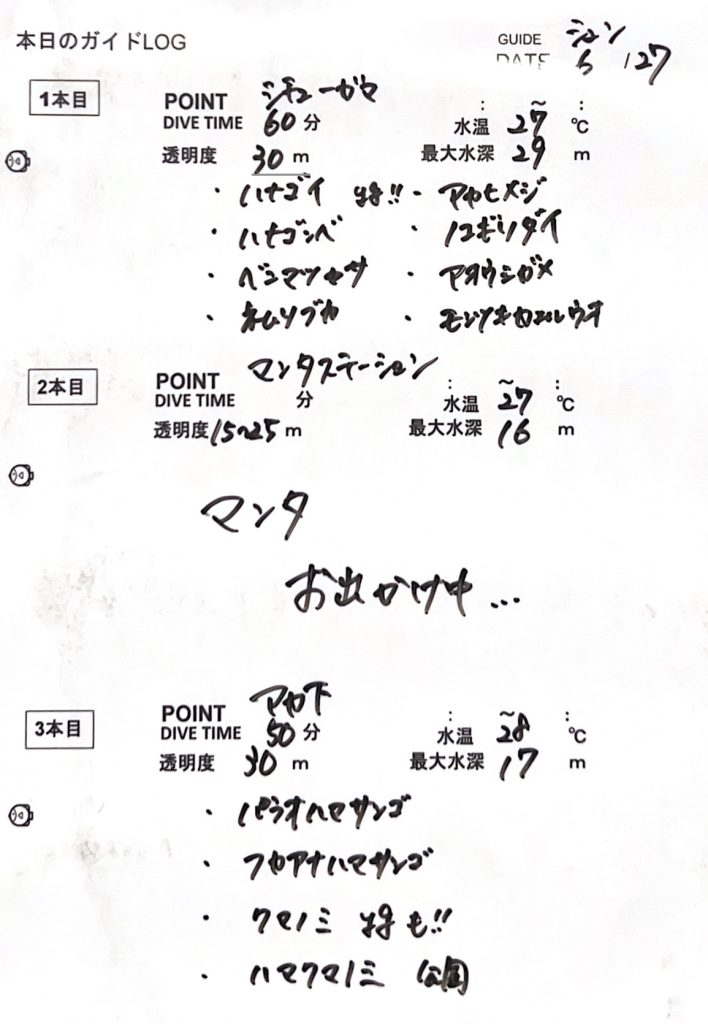 本日のガイドLOG GUIDE シュン
DATE 6/27
1本目 POINT シチューガマ : ~ :
DIVE TIME 60分 水温 27℃
透明度 30m 最大水深 29m
・ハナゴイ yg!! ・アカヒメジ
・ハナゴンベ ・ノコギリダイ
・ベニマツカサ ・アオウミガメ
・ネムリブカ ・モンツキカエルウオ
2本目 POINT マンタステーション : ~ :
DIVE TIME 分 水温 27℃
透明度 15~25m 最大水深 16m
マンタ
お出かけ中...
3本目 POINT アカ下 : ~ :
DIVE TIME 50分 水温 28℃
透明度 30m 最大水深 17m
・パラオハマサンゴ
・フカアナハマサンゴ
・クマノミ ygも!!
・ハマクマノミ 公園